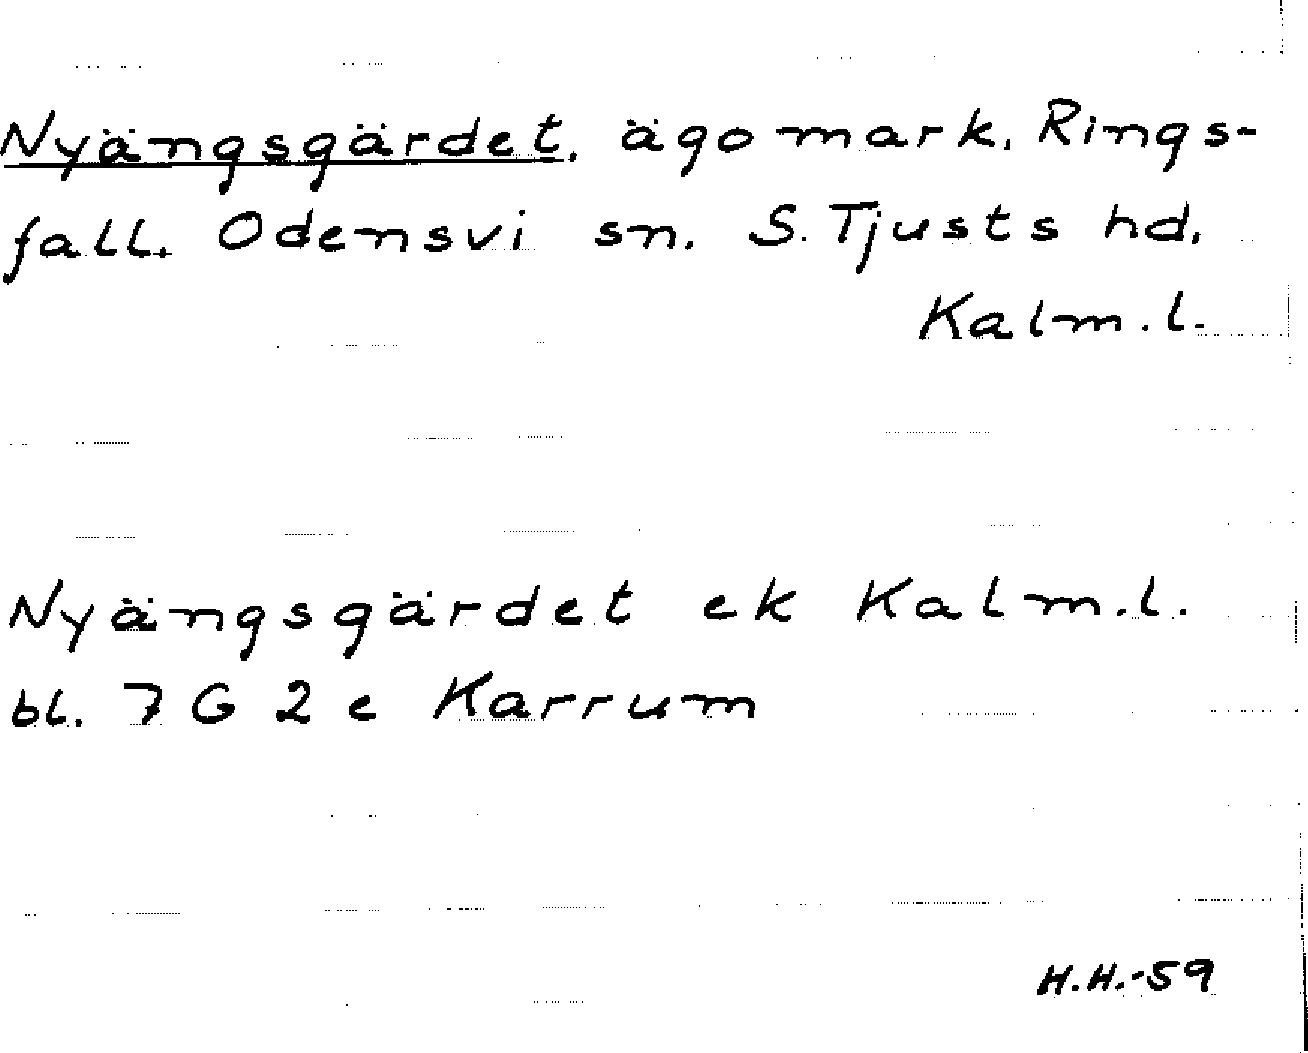 Nyängsgärdet, ägomark, Rings-
fall. Odensvi sn. S. Tjusts hd.
Kalm. l.
Nyängsgärdet ek Kalm. l.
bl. 7 G 2 e Karrum
H.H.-59